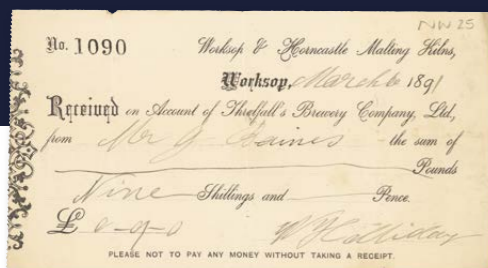 NW 25
No. 1090 Worksop & Horncastle Malting Kilns,
Worksop, March 6 1891
Received on Account of Threlfall's Brewery Company, Ltd,
from Mr J Haines the sum of
Pounds
Nine Shillings and Pence.
£ 0-9-0 W Holliday
PLEASE NOT TO PAY ANY MONEY WITHOUT TAKING A RECEIPT.